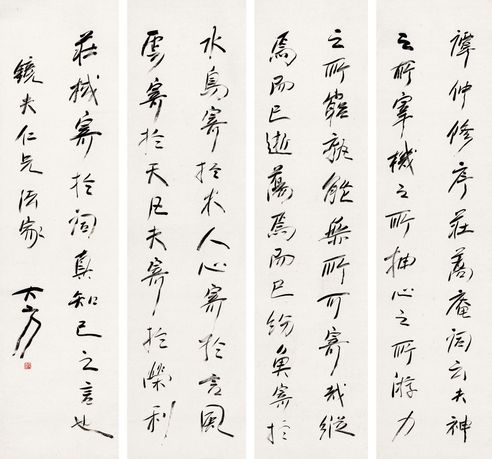 譚仲修序莊蒿庵詞云夫神
之所宰機之所抽心之所游力
之所孰能無所可寄哉縱
焉而已逝蕩焉而已紛魚寄於
水鳥寄於木人心寄於言風
雲寄於天凡夫寄於榮利
莊棫寄於詞真知己之言也
鏡夫仁兄法家 大方